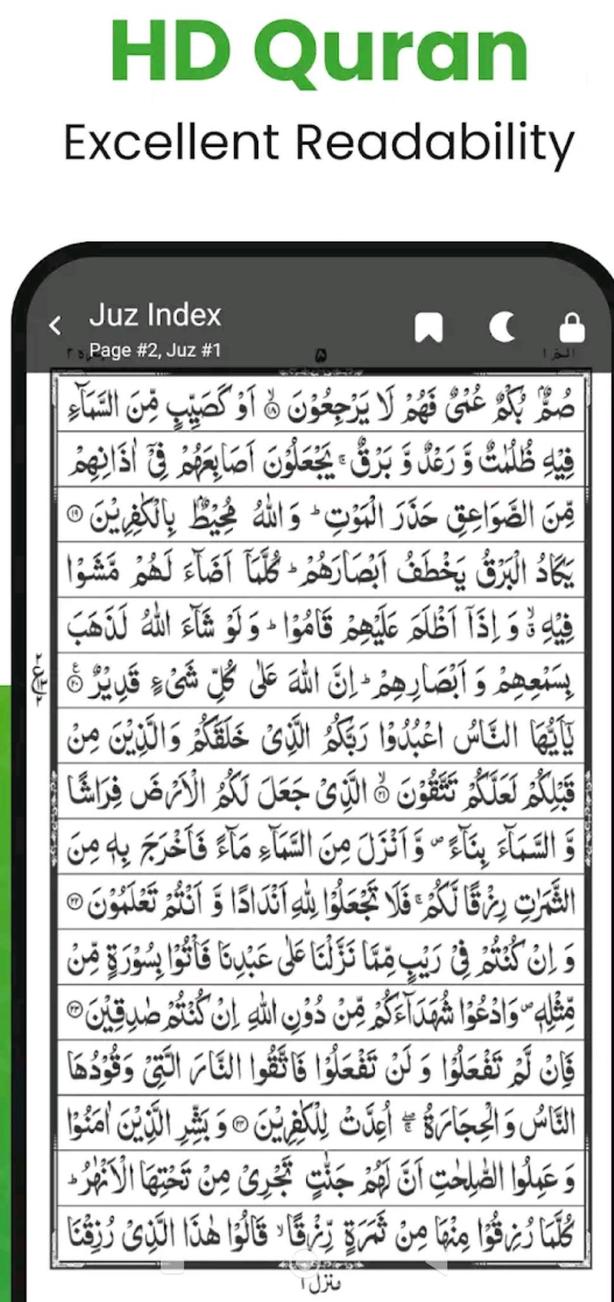 HD Quran
Excellent Readability
Juz Index
Page #2, Juz #1
۵
صُمٌّۢ بُكْمٌ عُمْیٌ فَهُمْ لَا یَرْجِعُوْنَ ۙ۱۸ اَوْ كَصَیِّبٍ مِّنَ السَّمَآءِ
فِیْهِ ظُلُمٰتٌ وَّ رَعْدٌ وَّ بَرْقٌ ۚ یَجْعَلُوْنَ اَصَابِعَهُمْ فِیْۤ اٰذَانِهِمْ
مِّنَ الصَّوَاعِقِ حَذَرَ الْمَوْتِ ؕ وَ اللّٰهُ مُحِیْطٌۢ بِالْكٰفِرِیْنَ ۱۹
یَكَادُ الْبَرْقُ یَخْطَفُ اَبْصَارَهُمْ ؕ كُلَّمَاۤ اَضَآءَ لَهُمْ مَّشَوْا
فِیْهِ ۙۗ وَ اِذَاۤ اَظْلَمَ عَلَیْهِمْ قَامُوْا ؕ وَ لَوْ شَآءَ اللّٰهُ لَذَهَبَ
بِسَمْعِهِمْ وَ اَبْصَارِهِمْ ؕ اِنَّ اللّٰهَ عَلٰی كُلِّ شَیْءٍ قَدِیْرٌ ۲۰
یٰۤاَیُّهَا النَّاسُ اعْبُدُوْا رَبَّكُمُ الَّذِیْ خَلَقَكُمْ وَ الَّذِیْنَ مِنْ
قَبْلِكُمْ لَعَلَّكُمْ تَتَّقُوْنَ ۙ۲۱ الَّذِیْ جَعَلَ لَكُمُ الْاَرْضَ فِرَاشًا
وَّ السَّمَآءَ بِنَآءً ۪ وَّ اَنْزَلَ مِنَ السَّمَآءِ مَآءً فَاَخْرَجَ بِهٖ مِنَ
الثَّمَرٰتِ رِزْقًا لَّكُمْ ۚ فَلَا تَجْعَلُوْا لِلّٰهِ اَنْدَادًا وَّ اَنْتُمْ تَعْلَمُوْنَ ۲۲
وَ اِنْ كُنْتُمْ فِیْ رَیْبٍ مِّمَّا نَزَّلْنَا عَلٰی عَبْدِنَا فَاْتُوْا بِسُوْرَةٍ مِّنْ
مِّثْلِهٖ ۪ وَ ادْعُوْا شُهَدَآءَكُمْ مِّنْ دُوْنِ اللّٰهِ اِنْ كُنْتُمْ صٰدِقِیْنَ ۲۳
فَاِنْ لَّمْ تَفْعَلُوْا وَ لَنْ تَفْعَلُوْا فَاتَّقُوا النَّارَ الَّتِیْ وَقُوْدُهَا
النَّاسُ وَ الْحِجَارَةُ ۖۚ اُعِدَّتْ لِلْكٰفِرِیْنَ ۲۴ وَ بَشِّرِ الَّذِیْنَ اٰمَنُوْا
وَ عَمِلُوا الصّٰلِحٰتِ اَنَّ لَهُمْ جَنّٰتٍ تَجْرِیْ مِنْ تَحْتِهَا الْاَنْهٰرُ ؕ
كُلَّمَا رُزِقُوْا مِنْهَا مِنْ ثَمَرَةٍ رِّزْقًا ۙ قَالُوْا هٰذَا الَّذِیْ رُزِقْنَا
منزل ۱